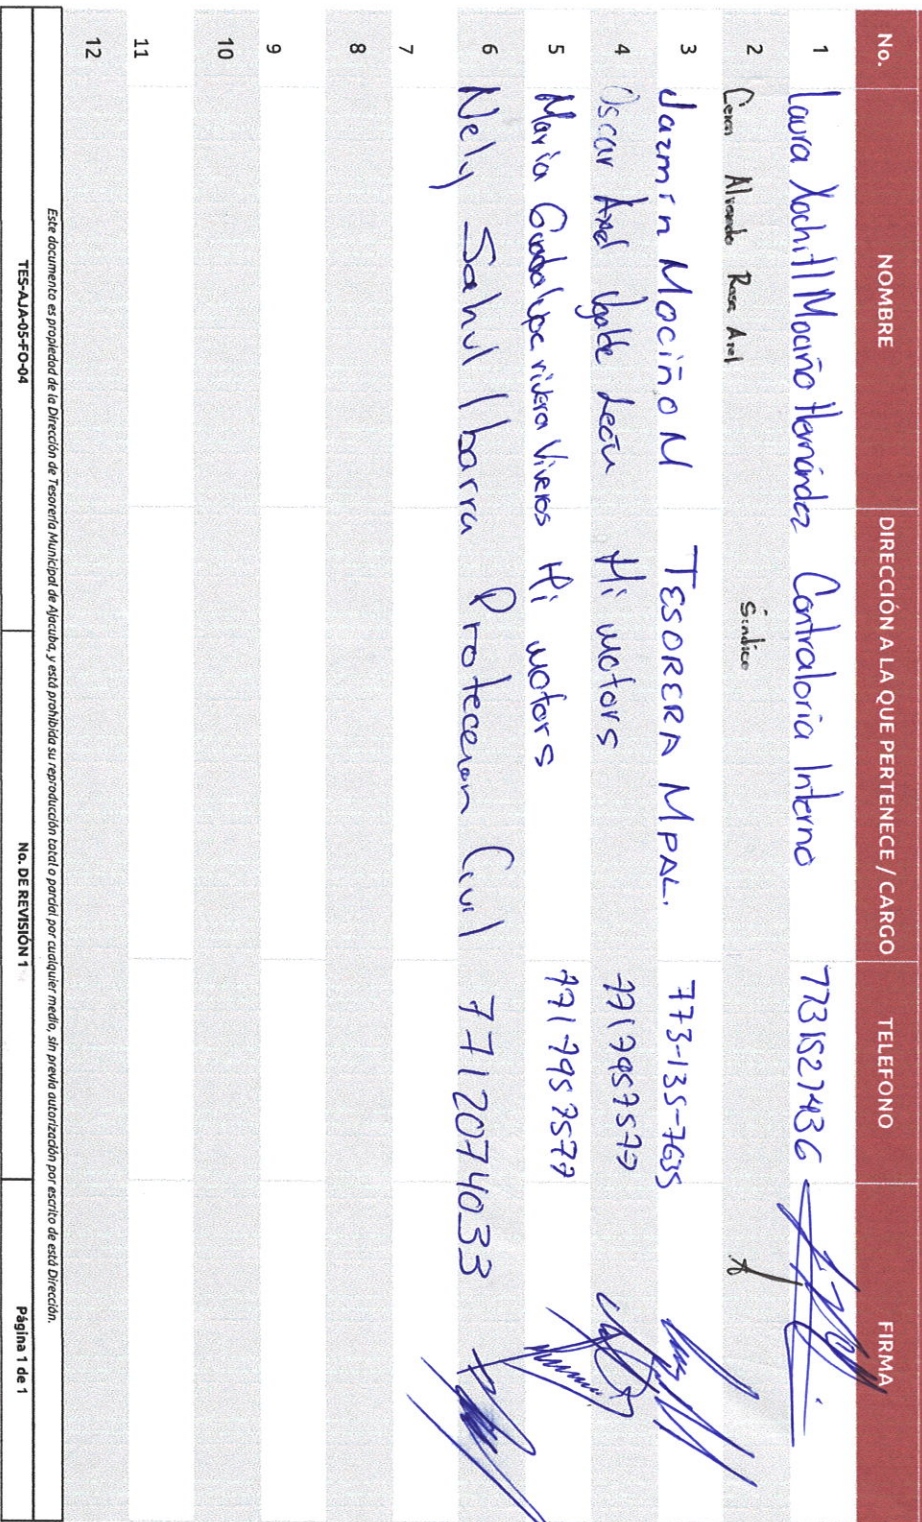 No. NOMBRE DIRECCIÓN A LA QUE PERTENECE / CARGO TELEFONO FIRMA
1 Laura Xochitl Mociño Hernández Contraloria Interno 7731527436
2 Ceron Alvarado Rosa Azel Sindico
3 Jazmin Mociño M TESORERA MPAL. 773-135-7635
4 Oscar Axel Ugalde León Hi motors 7717957577
5 Maria Guadalupe rivera Viveros Hi motors 771-7957577
6 Nely Sahul Ibarra Proteceion Civil 7712074033
7
8
9
10
11
12
Este documento es propiedad de la Dirección de Tesorería Municipal de Ajacuba, y está prohibida su reproducción total o parcial por cualquier medio, sin previa autorización por escrito de está Dirección.
TES-AJA-05-FO-04 No. DE REVISIÓN 1 Página 1 de 1